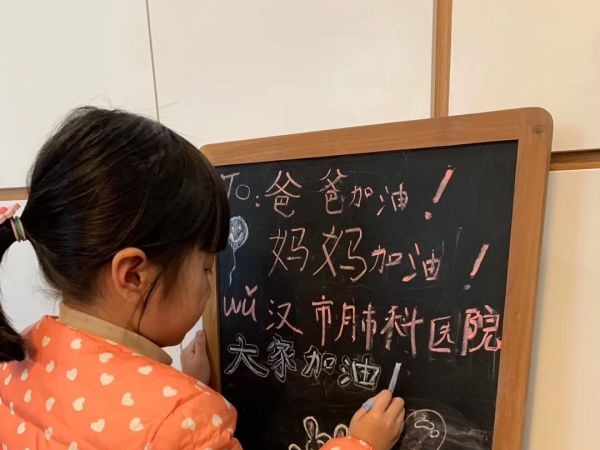 To:爸爸加油!
妈妈加油!
wǔ汉市肺科医院
大家加油